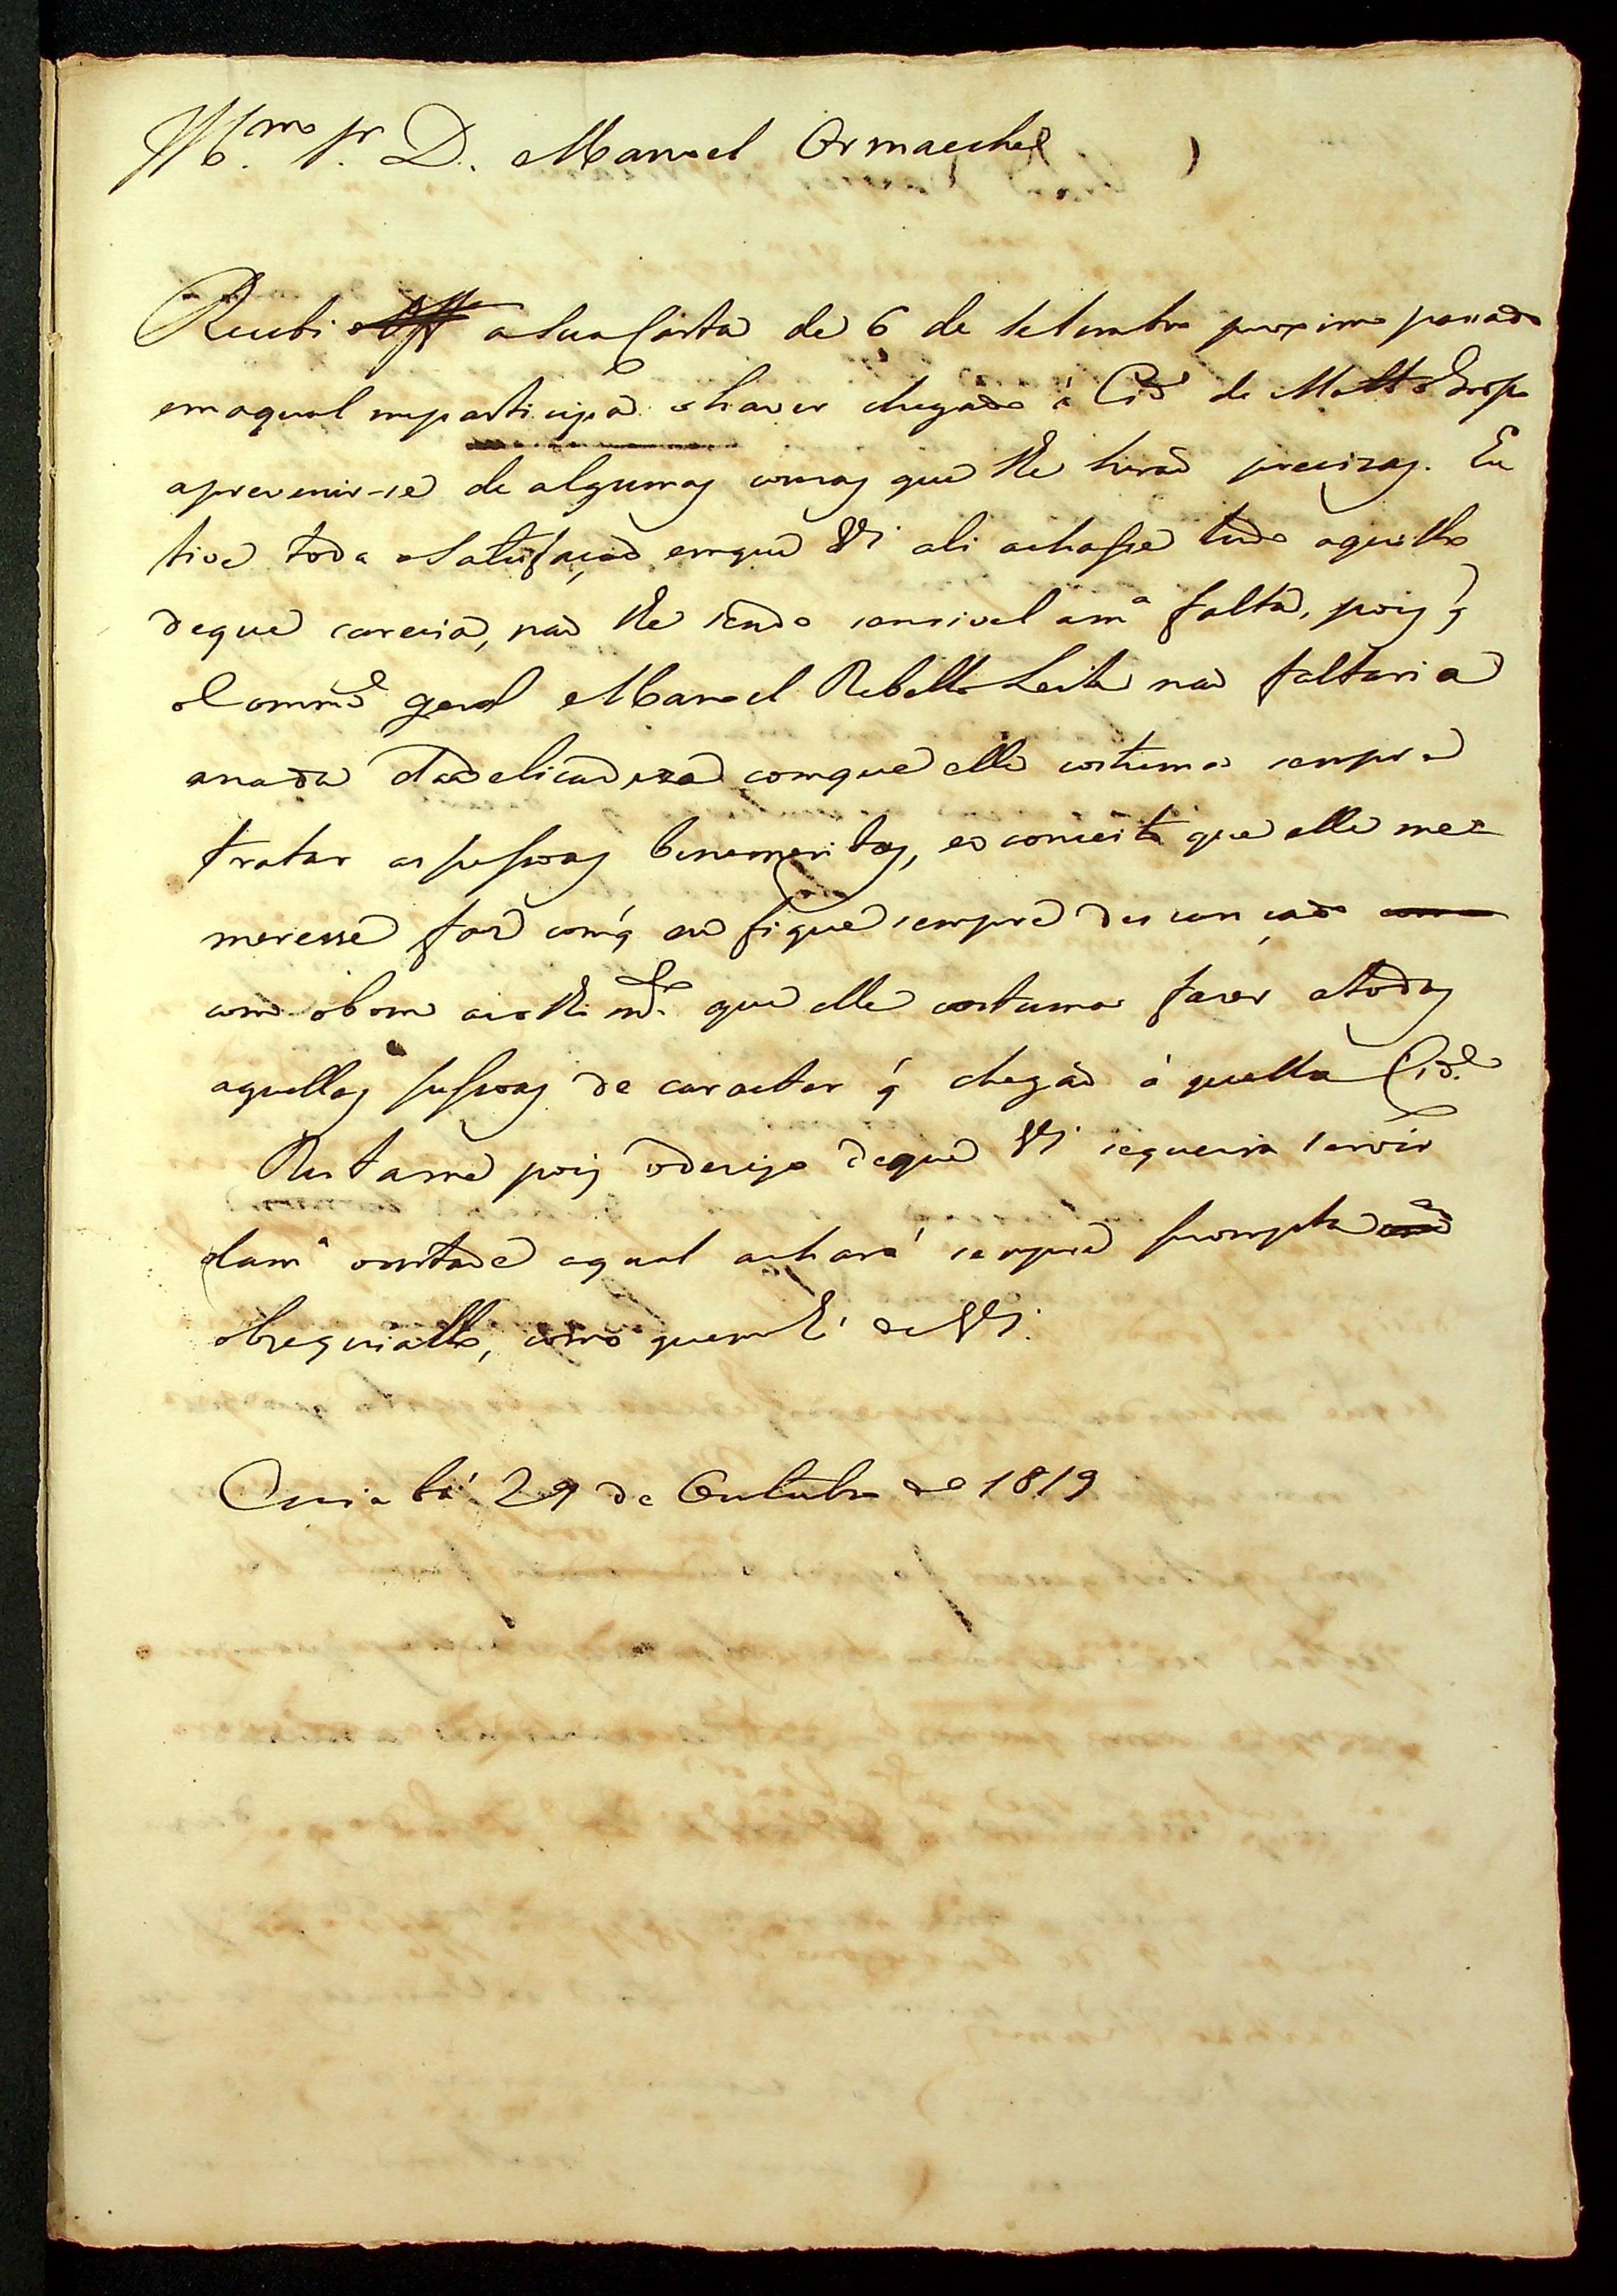 Ill.mo Sr. D. Manoel Ormaechea
Recebi a Sua Carta de 6 de Setembro proximo passado
em aqual meparticipa o haver chegado á Cid.e de Matto Groso
aprevenir-se de algumas cousas que lhe herão precizas. Eu
tive toda a Satisfação emque VS ali achasse tudo aquillo
deque carecia, não lhe sendo sensivel am.a falta, pois q̃
o Comm.e geral Manoel Rebello Leite não faltaria
anada da delicadeza comque elle costuma sempre
tratar as pessoas benemeritas, eo conceito que elle me
meresse faz comq̃ eu fique sempre descançado
com obom acolhim.to que elle costuma fazer atodas
aquellas pessoas de caracter q̃ chegão áquella Cid.e
Restame pois odesejo deque VS sequeira servir
dam.a vontade aqual achará sempre prompta em
obzequiallo, como quem hé de VS.
Cuiabá 29 de Outubro de 1819